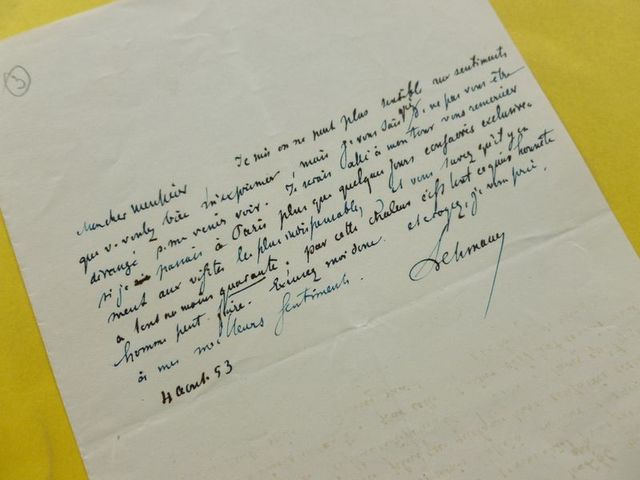 3
Mon cher Monsieur
Je suis on ne peut plus sensible aux sentiments
que v. voulez bien m'exprimer, mais je vous sais gré, ne pas vous être
dérangé p. me venir voir. Je serais allé à mon tour vous remercier
si je passais à Paris plus que quelques jours consacrés exclusive-
ment aux visites les plus indispensables, et vous savez qu'il y en
a tens au moins quarante. par cette chaleur c'est tout ce qu'un honnête
homme peut faire. Excusez moi donc. et croyez, je vous prie
à mes meilleurs sentiments.
Lehmann
4 Août. 53